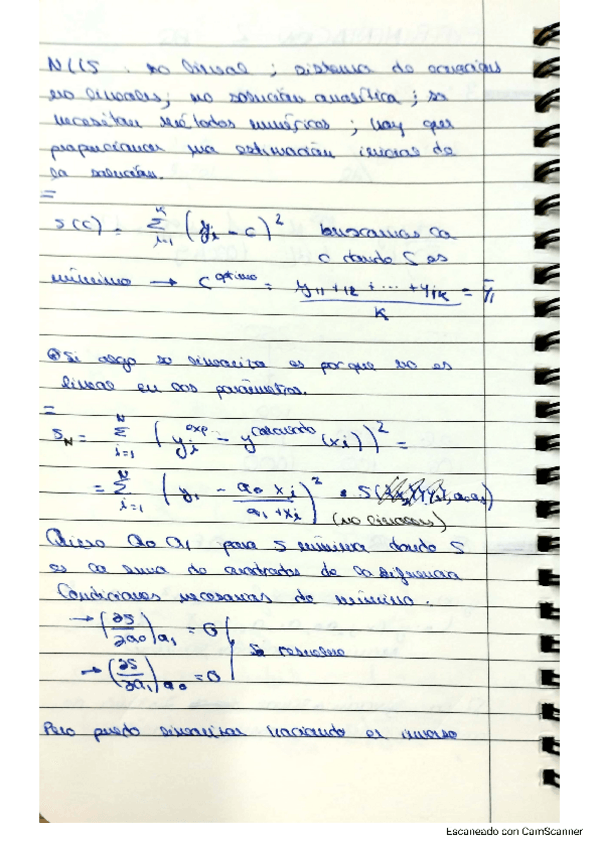 NLLS : no lineal ; sistema de ecuaciones
no lineales; no solución analítica ; se
necesitan métodos numéricos ; hay que
proporcionar una estimación inicial de
la solución.
=
S(c) = Σ_{i=1}^{K} (y_i - c)^2 buscamos la
c donde S es
mínimo → c^{óptimo} = (y_{11} + y_{12} + ... + y_{1K}) / K = ȳ_1
Si algo se linealiza es porque no es
lineal en los parámetros.
=
S_N = Σ_{i=1}^{N} (y_i^{exp} - y^{calculado}(x_i))^2 =
= Σ_{i=1}^{N} (y_i - a_0 x_i / (a_1 + x_i))^2
(no lineales)
Quiero a_0 a_1 para S mínima donde S
es la suma de cuadrados de la diferencia
Condiciones necesarias de mínimo :
→ (∂S/∂a_0)_{a_1} = 0
se resuelve
→ (∂S/∂a_1)_{a_0} = 0
Pero puedo linealizar haciendo el inverso
Escaneado con CamScanner